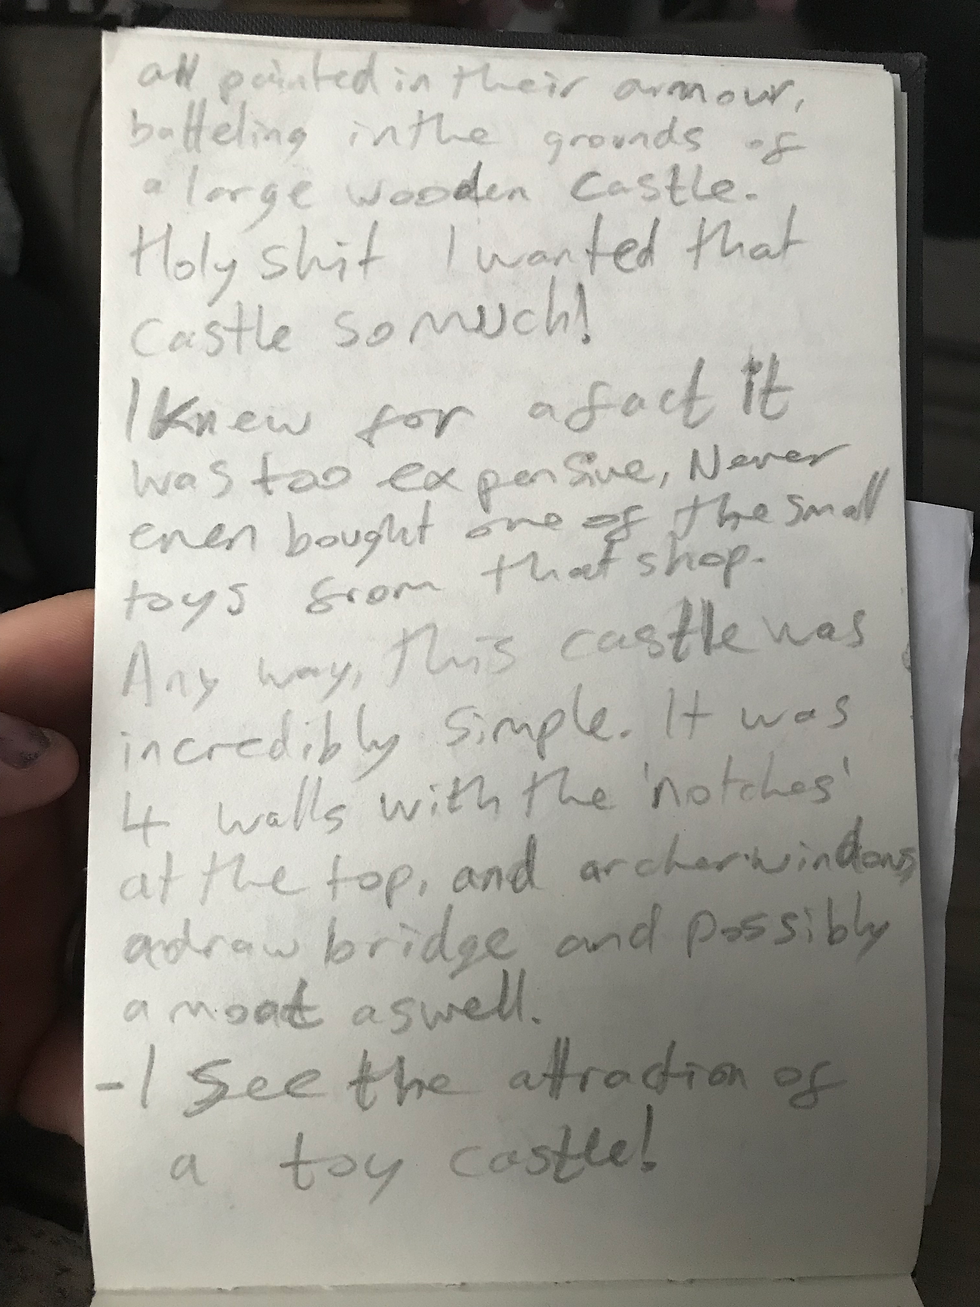 all painted in their armour,
batteling in the grounds of
a large wooden castle.
Holy shit I wanted that
castle so much!
I knew for a fact it
was too expensive, Never
even bought one of the small
toys from that shop.
Any way, this castle was
incredibly simple. It was
4 walls with the 'notches'
at the top, and archer windows,
a draw bridge and possibly
a moat aswell.
- I see the attraction of
a toy castle!